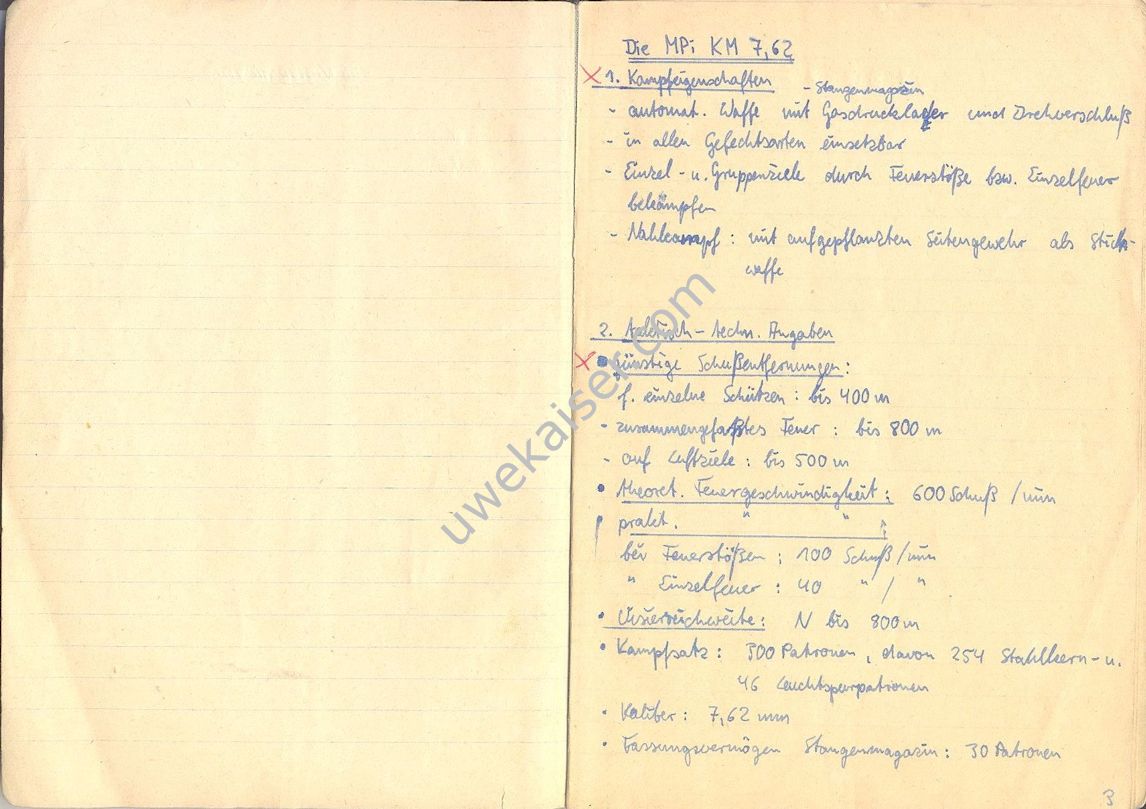 Die MPi KM 7,62
1. Kampfeigenschaften
- Stangenmagazin
- automat. Waffe mit Gasdrucklader und Drehverschluß
- in allen Gefechtsarten einsetzbar
- Einzel- u. Gruppenziele durch Feuerstöße bzw. Einzelfeuer
bekämpfen
- Nahkampf : mit aufgepflanzten Seitengewehr als Stich-
waffe
2. Taktisch-techn. Angaben
• günstige Schußentfernungen:
f. einzelne Schützen : bis 400 m
- zusammengefaßtes Feuer : bis 800 m
- auf Luftziele : bis 500 m
• theoret. Feuergeschwindigkeit : 600 Schuß / min
prakt. " " :
bei Feuerstößen : 100 Schuß / min
" Einzelfeuer : 40 " / "
• Visierreichweite : N bis 800 m
• Kampfsatz : 300 Patronen, davon 254 Stahlkern- u.
46 Leuchtspurpatronen
• Kaliber : 7,62 mm
• Fassungsvermögen Stangenmagazin : 30 Patronen
3
uwekaiser.com